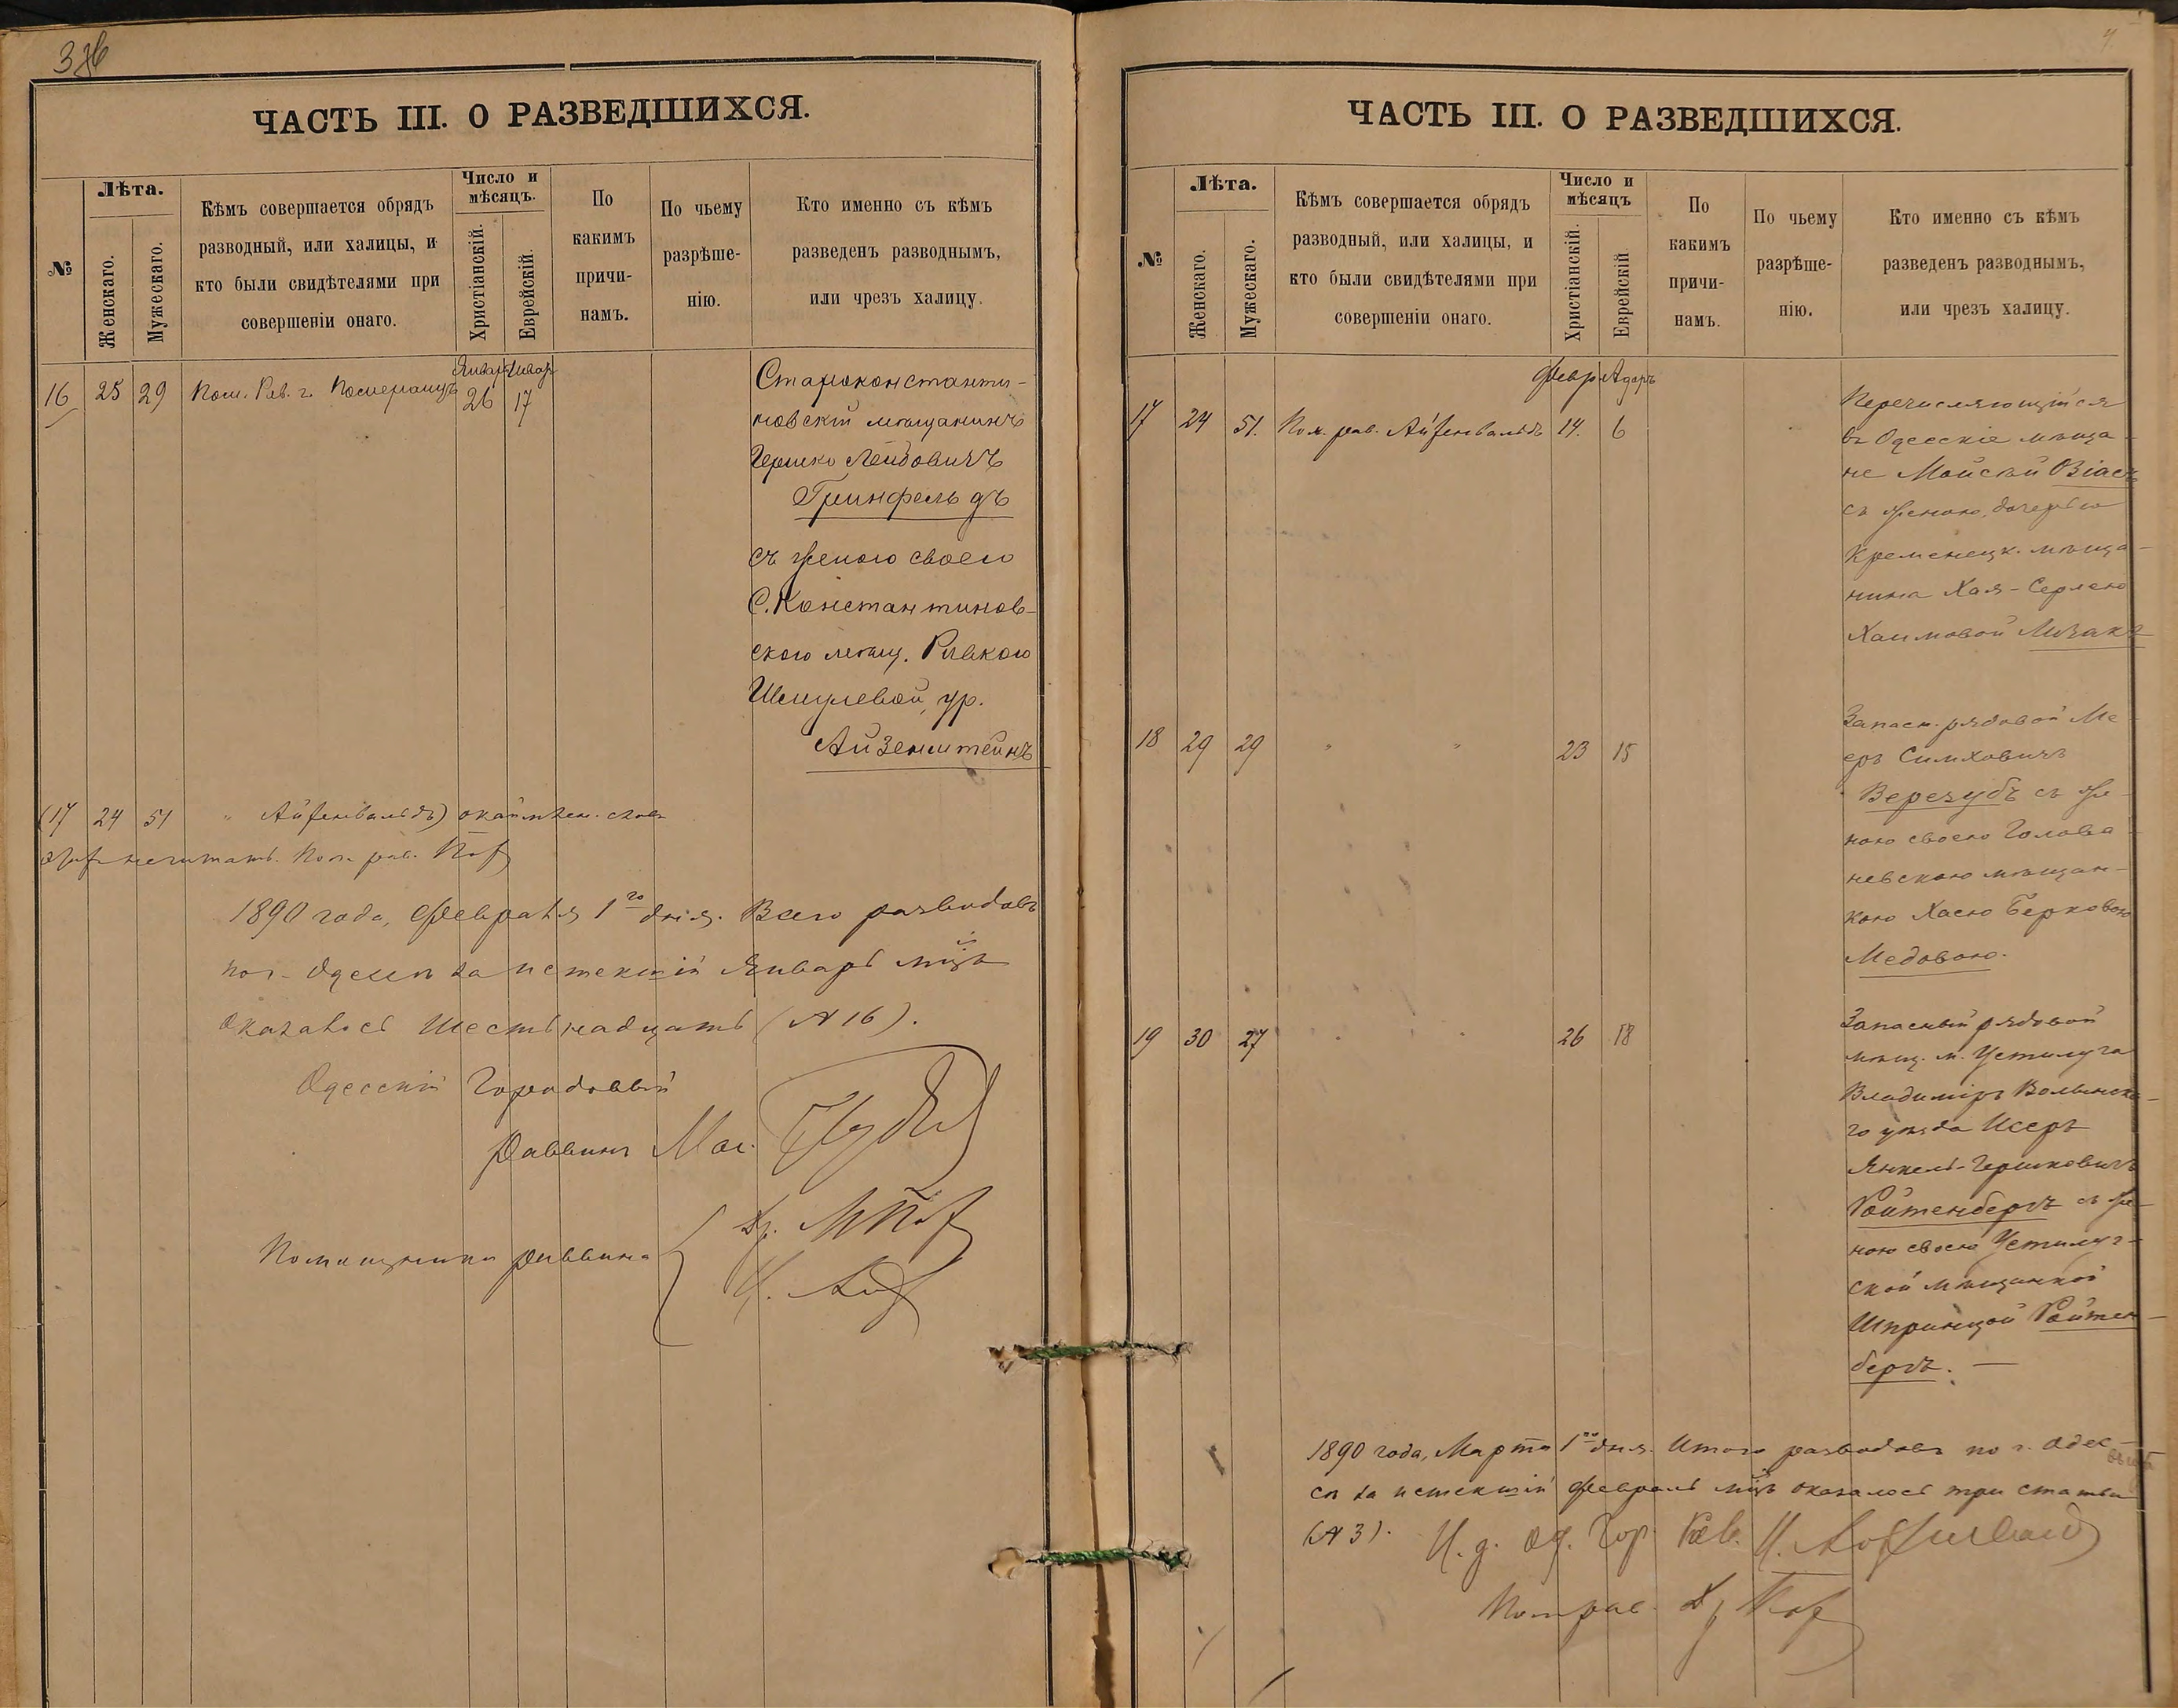 ЧАСТЬ III. О РАЗВЕДШИХСЯ.
№
Лѣта.
Женскаго.
Мужескаго.
Кѣмъ совершается обрядъ
разводный, или халицы, и
кто были свидѣтелями при
совершеніи онаго.
Число и
мѣсяцъ.
Христіанскій.
Еврейскій.
По
какимъ
причи-
намъ.
По чьему
разрѣше-
нію.
Кто именно съ кѣмъ
разведенъ разводнымъ,
или чрезъ халицу.
16 25 29 Пом. Рав. г. Померанцъ 26 17
Староконстанти-
новскій мѣщанинъ
Гершко Лейбовичъ
Гринфельдъ
съ женою своею
С. Константинов-
скою мѣщ. Ривкою
Шмулевой, ур.
Айзенштейнъ
(17 24 51 " Айзенвальдъ)
не читать. Пом. рав.
1890 года, Февраля 1го дня. Всего разводовъ
по г. Одессѣ за истекшій Январь мѣц
оказалось Шестьнадцать (№ 16).
Одесскій Городовой
Раввинъ
Помощники раввина
ЧАСТЬ III. О РАЗВЕДШИХСЯ.
№
Лѣта.
Женскаго.
Мужескаго.
Кѣмъ совершается обрядъ
разводный, или халицы, и
кто были свидѣтелями при
совершеніи онаго.
Число и
мѣсяцъ
Христіанскій.
Еврейскій
По
какимъ
причи-
намъ.
По чьему
разрѣше-
нію.
Кто именно съ кѣмъ
разведенъ разводнымъ,
или чрезъ халицу.
Февр Адаръ
17 24 51. Пом. рав. Айзенвальдъ 14. 6
Перечисляющійся
въ Одесскіе мѣща-
не Мойсей Озіасъ
съ женою, дочерью
Кременецк. мѣща-
нина Хая-Серлею
Хаимовой
18 29 29 " " 23 15
Запасн. рядовой Ме-
еръ Симховичъ
Верезубъ съ же-
ною своею Голова-
невскою мѣщан-
кою Хасею Берковою
Медовою.
19 30 27 " " 26 18
Запасный рядовой
мѣщ. м. Устилуга
Владиміръ Волынска-
го уѣзда Исеръ
Янкель-Гершковичъ
Ройтенбергъ съ же-
ною своею Устилуг-
ской мѣщанкой
Шпринцой Ройтен-
бергъ. —
1890 года, Марта 1го дня. Итого разводовъ по г. Одес-
сѣ за истекшій Февраль мѣц оказалось три статьи
(№ 3). И. д. Од. Гор. Рав.
Пом. рав. Др